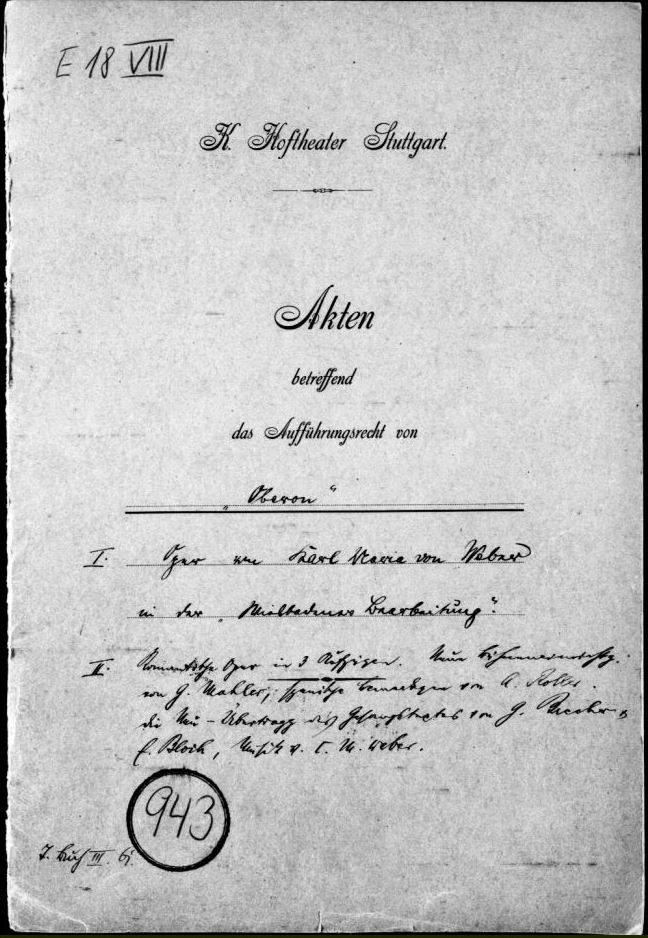 E 18 VIII
K. Hoftheater Stuttgart.
Akten
betreffend
das Aufführungsrecht von
„Oberon“
I. Oper von Karl Maria von Weber
in der „Wiesbadener Bearbeitung“.
II. Romantische Oper in 3 Aufzügen. Neue
von G. Mahler, szenische von A. Roller.
die Neu-Übertragg des Gesangstextes von G. Brecher u
E. Bloch, Musik v. C. M. Weber.
943
III. 61.